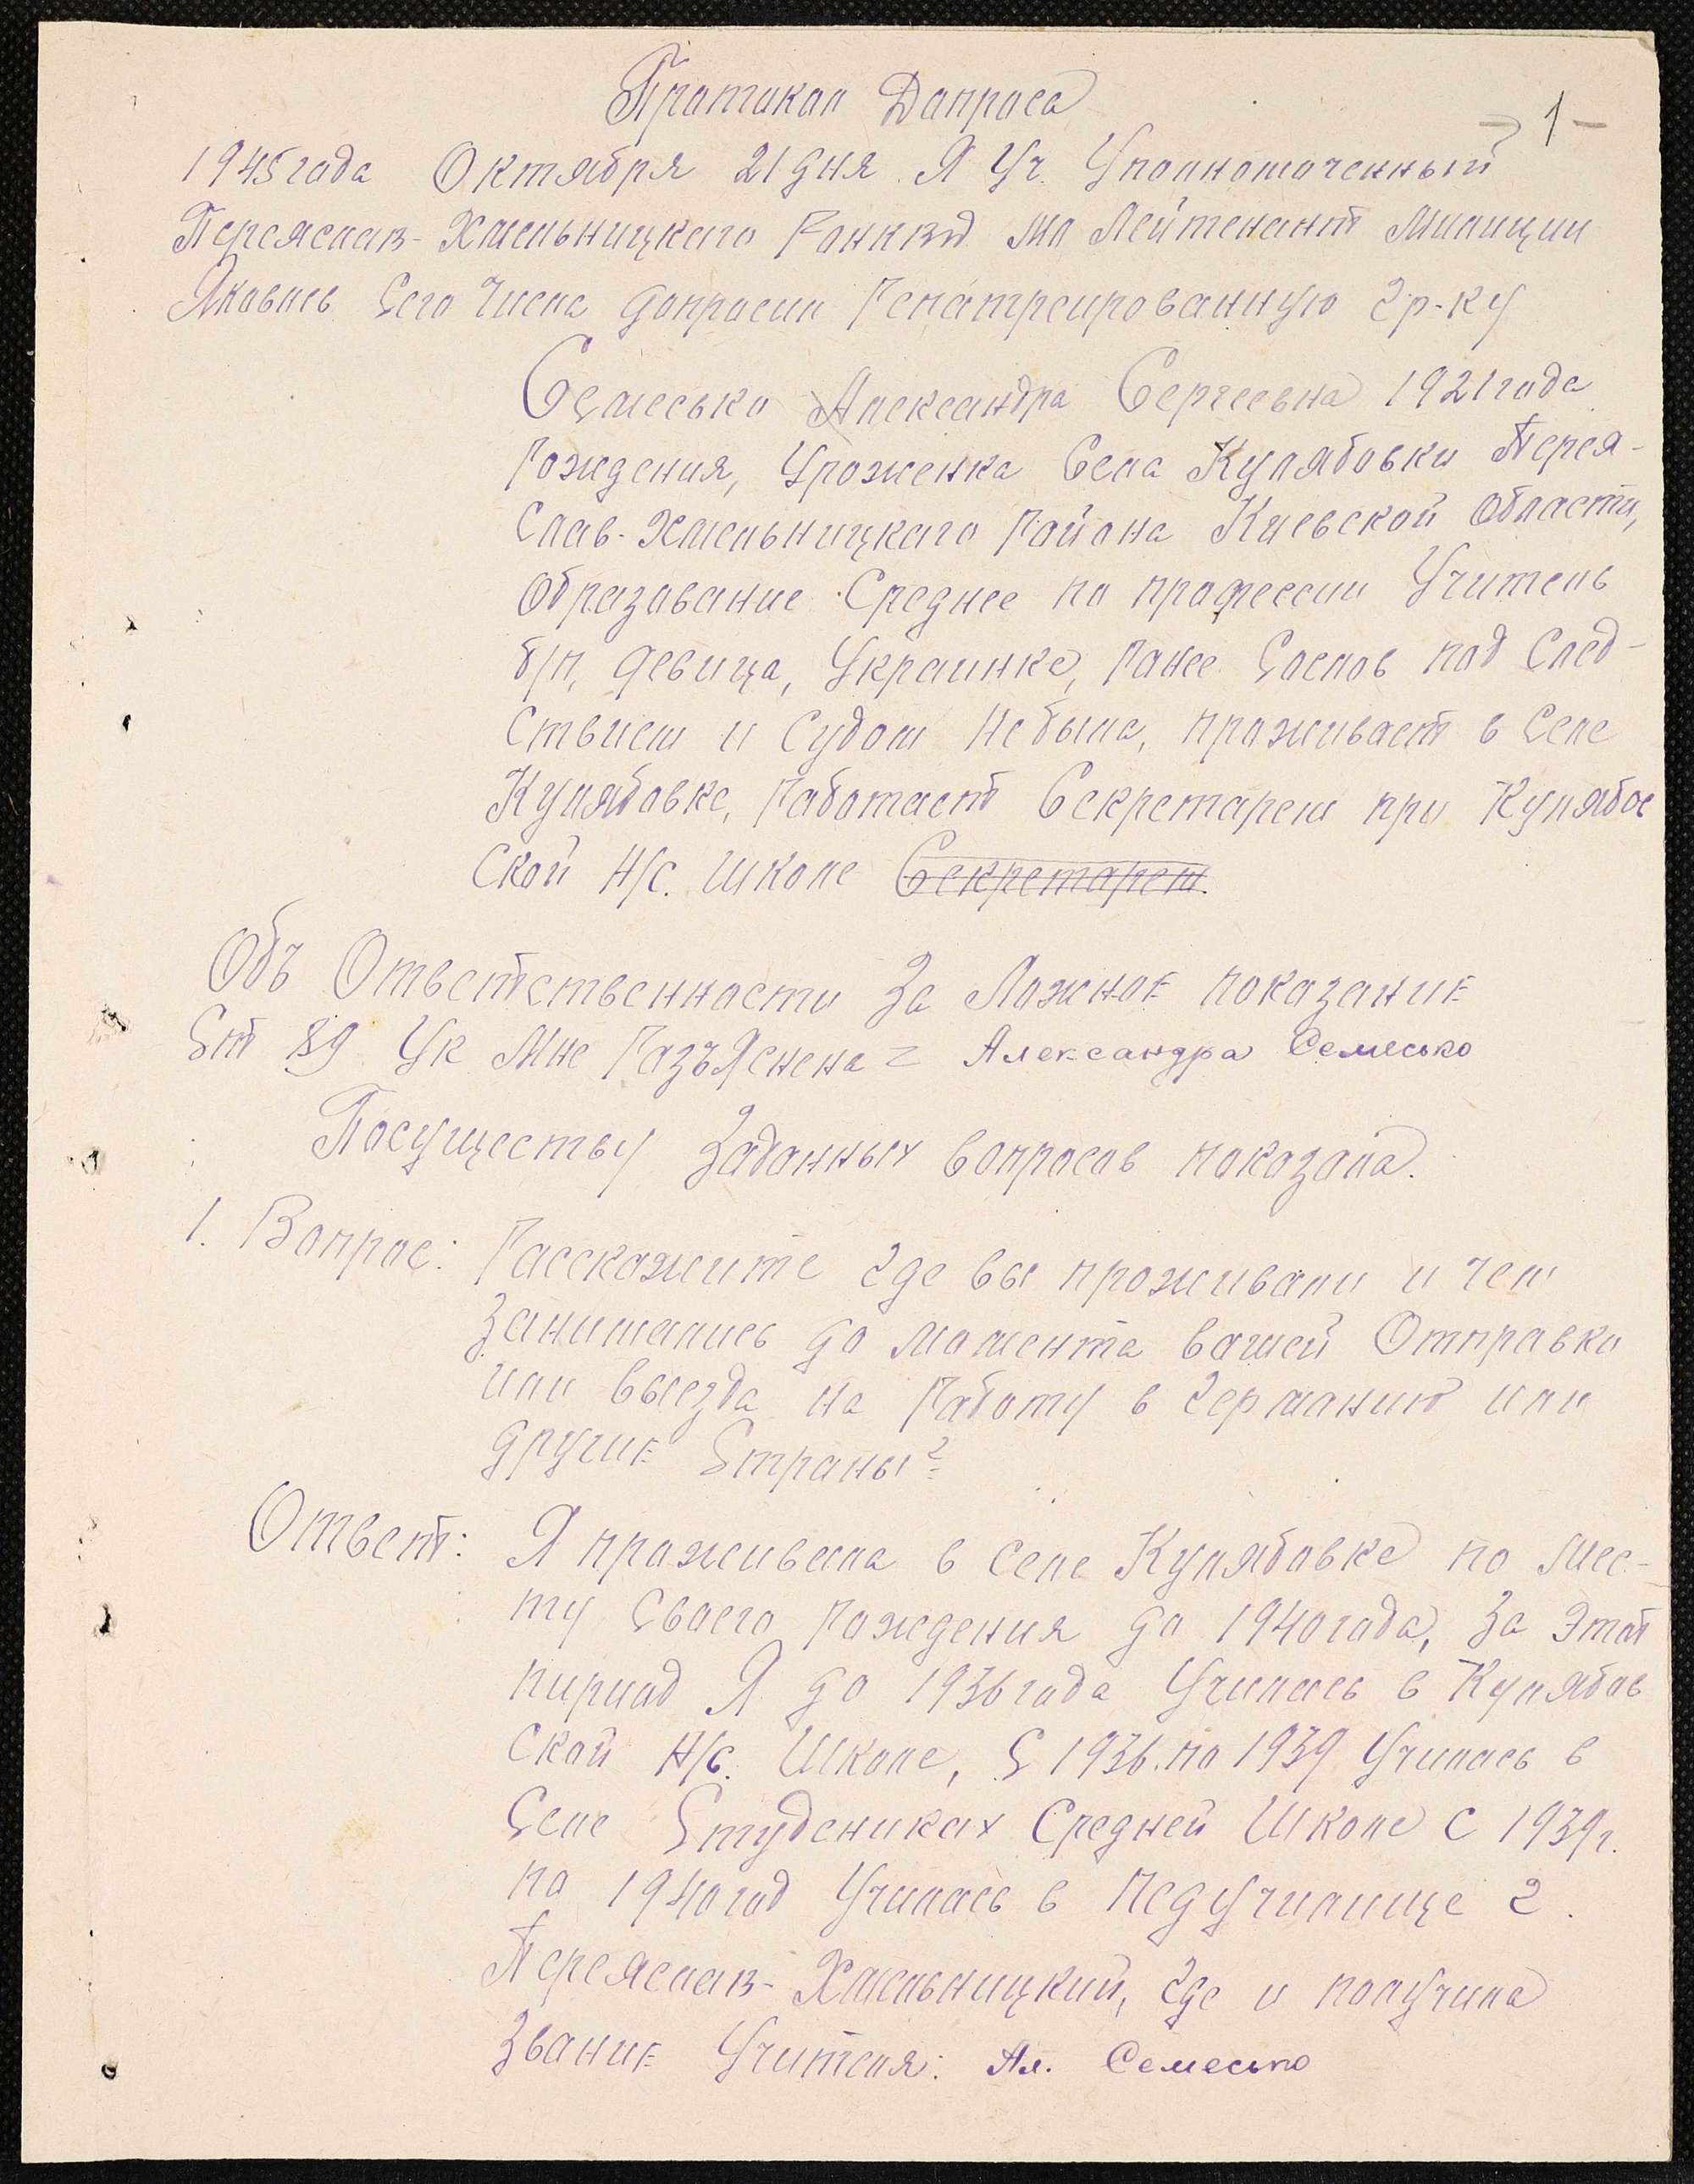 Пратакол Допроса
-1-
1945 года Октября 21 дня Я Уч. Уполномоченный
Переяслав-Хмельницкаго РОНКВД Мл Лейтенант Милиции
Яковлев Сего Числа допросил Репатреированную гр-ку
Семесько Александра Сергеевна 1921 года
Рождения, Уроженка Села Кулябовки Перея-
Слав-Хмельницкаго Района Киевской области,
образавание Среднее по профессии Учитель
б/п, девица, Украинка, Ранее Со слов под След-
ствием и Судом Не была, проживает в Селе
Кулябовке, Работает Секретарем при Кулябов
ской Н/С. школе Секретарем.
Объ Ответственности За Ложное показание
Ст 89 УК Мне Разъяснена = Александра Семесько
Посуществу Заданных вопросов показала.
1. Вопрос: Расскажите где вы проживали и чем
Занимались до Момента вашей Отправки
или выезда на Работу в Германию или
другие Страны?
Ответ: Я проживала в Селе Кулябовке по Мес-
ту Своего Рождения до 1940 года, За Этот
пириод Я до 1936 года Училась в Кулябов
ской Н/С. Школе, С 1936. по 1939 Училась в
Селе Студениках Средней Школе С 1939 г.
по 1940 год Училась в Педучилище г.
Переяслав-Хмельницкий, где и получила
Звание Учителя: Ал. Семесько